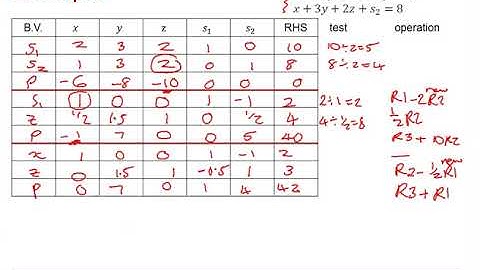 x + 3y + 2z + s₂ = 8
B.V. x y z s₁ s₂ RHS test operation
S₁ 2 3 2 1 0 10 10÷2=5
S₂ 1 3 2 0 1 8 8÷2=4
P -6 -8 -10 0 0 0
S₁ 1 0 0 1 -1 2 2÷1=2 R1-2R2 new
z 1/2 1.5 1 0 1/2 4 4÷½=8 ½R2
P -1 7 0 0 5 40 R3+10R2
x 1 0 0 1 -1 2 —
z 0 1.5 1 -0.5 1 3 R2-½R1 new
P 0 7 0 1 4 42 R3+R1